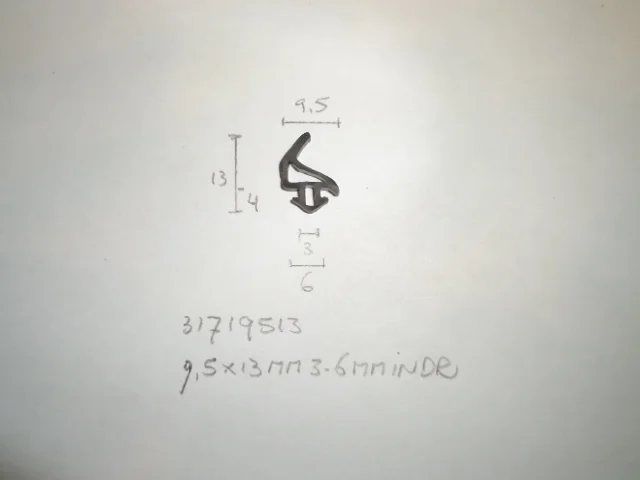 9,5
13
4
3
6
31719513
9,5x13MM3-6MMiNDR